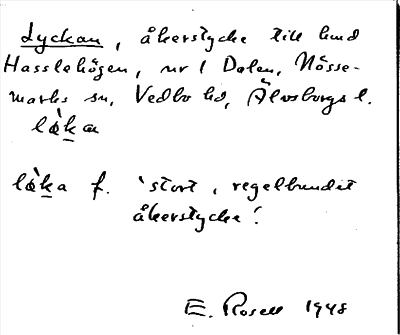 Lyckan, åkerstycke till lund
Hasslehögen, nr 1 Dalen, Nösse-
marks sn, Vedbo hd, Älvsborgs l.
lø̀kan
lø̀ka f. 'stort, regelbundet
åkerstycke'.
E. Rosell 1948